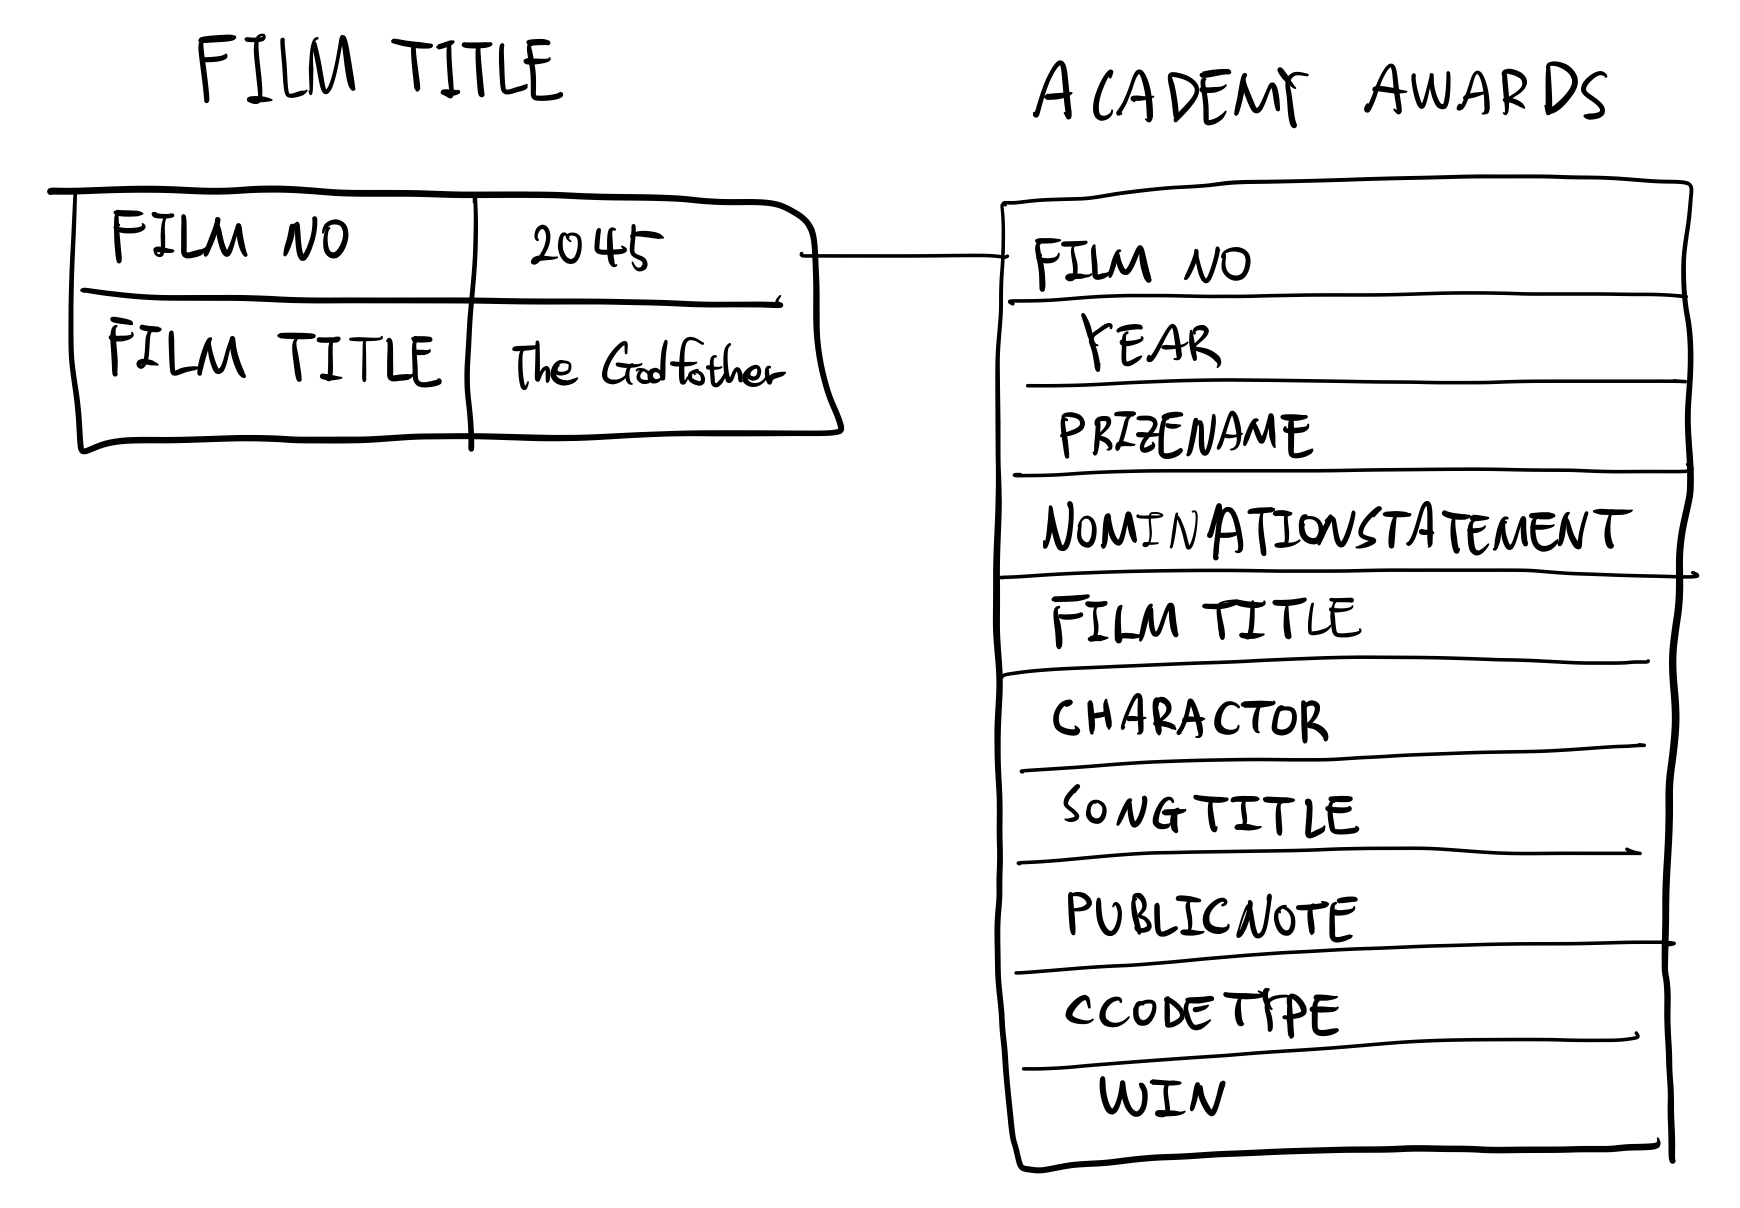 FILM TITLE
FILM NO 2045
FILM TITLE The Godfother
ACADEMY AWARDS
FILM NO
YEAR
PRIZENAME
NOMINATIONSTATEMENT
FILM TITLE
CHARACTOR
SONGTITLE
PUBLICNOTE
CCODETYPE
WIN